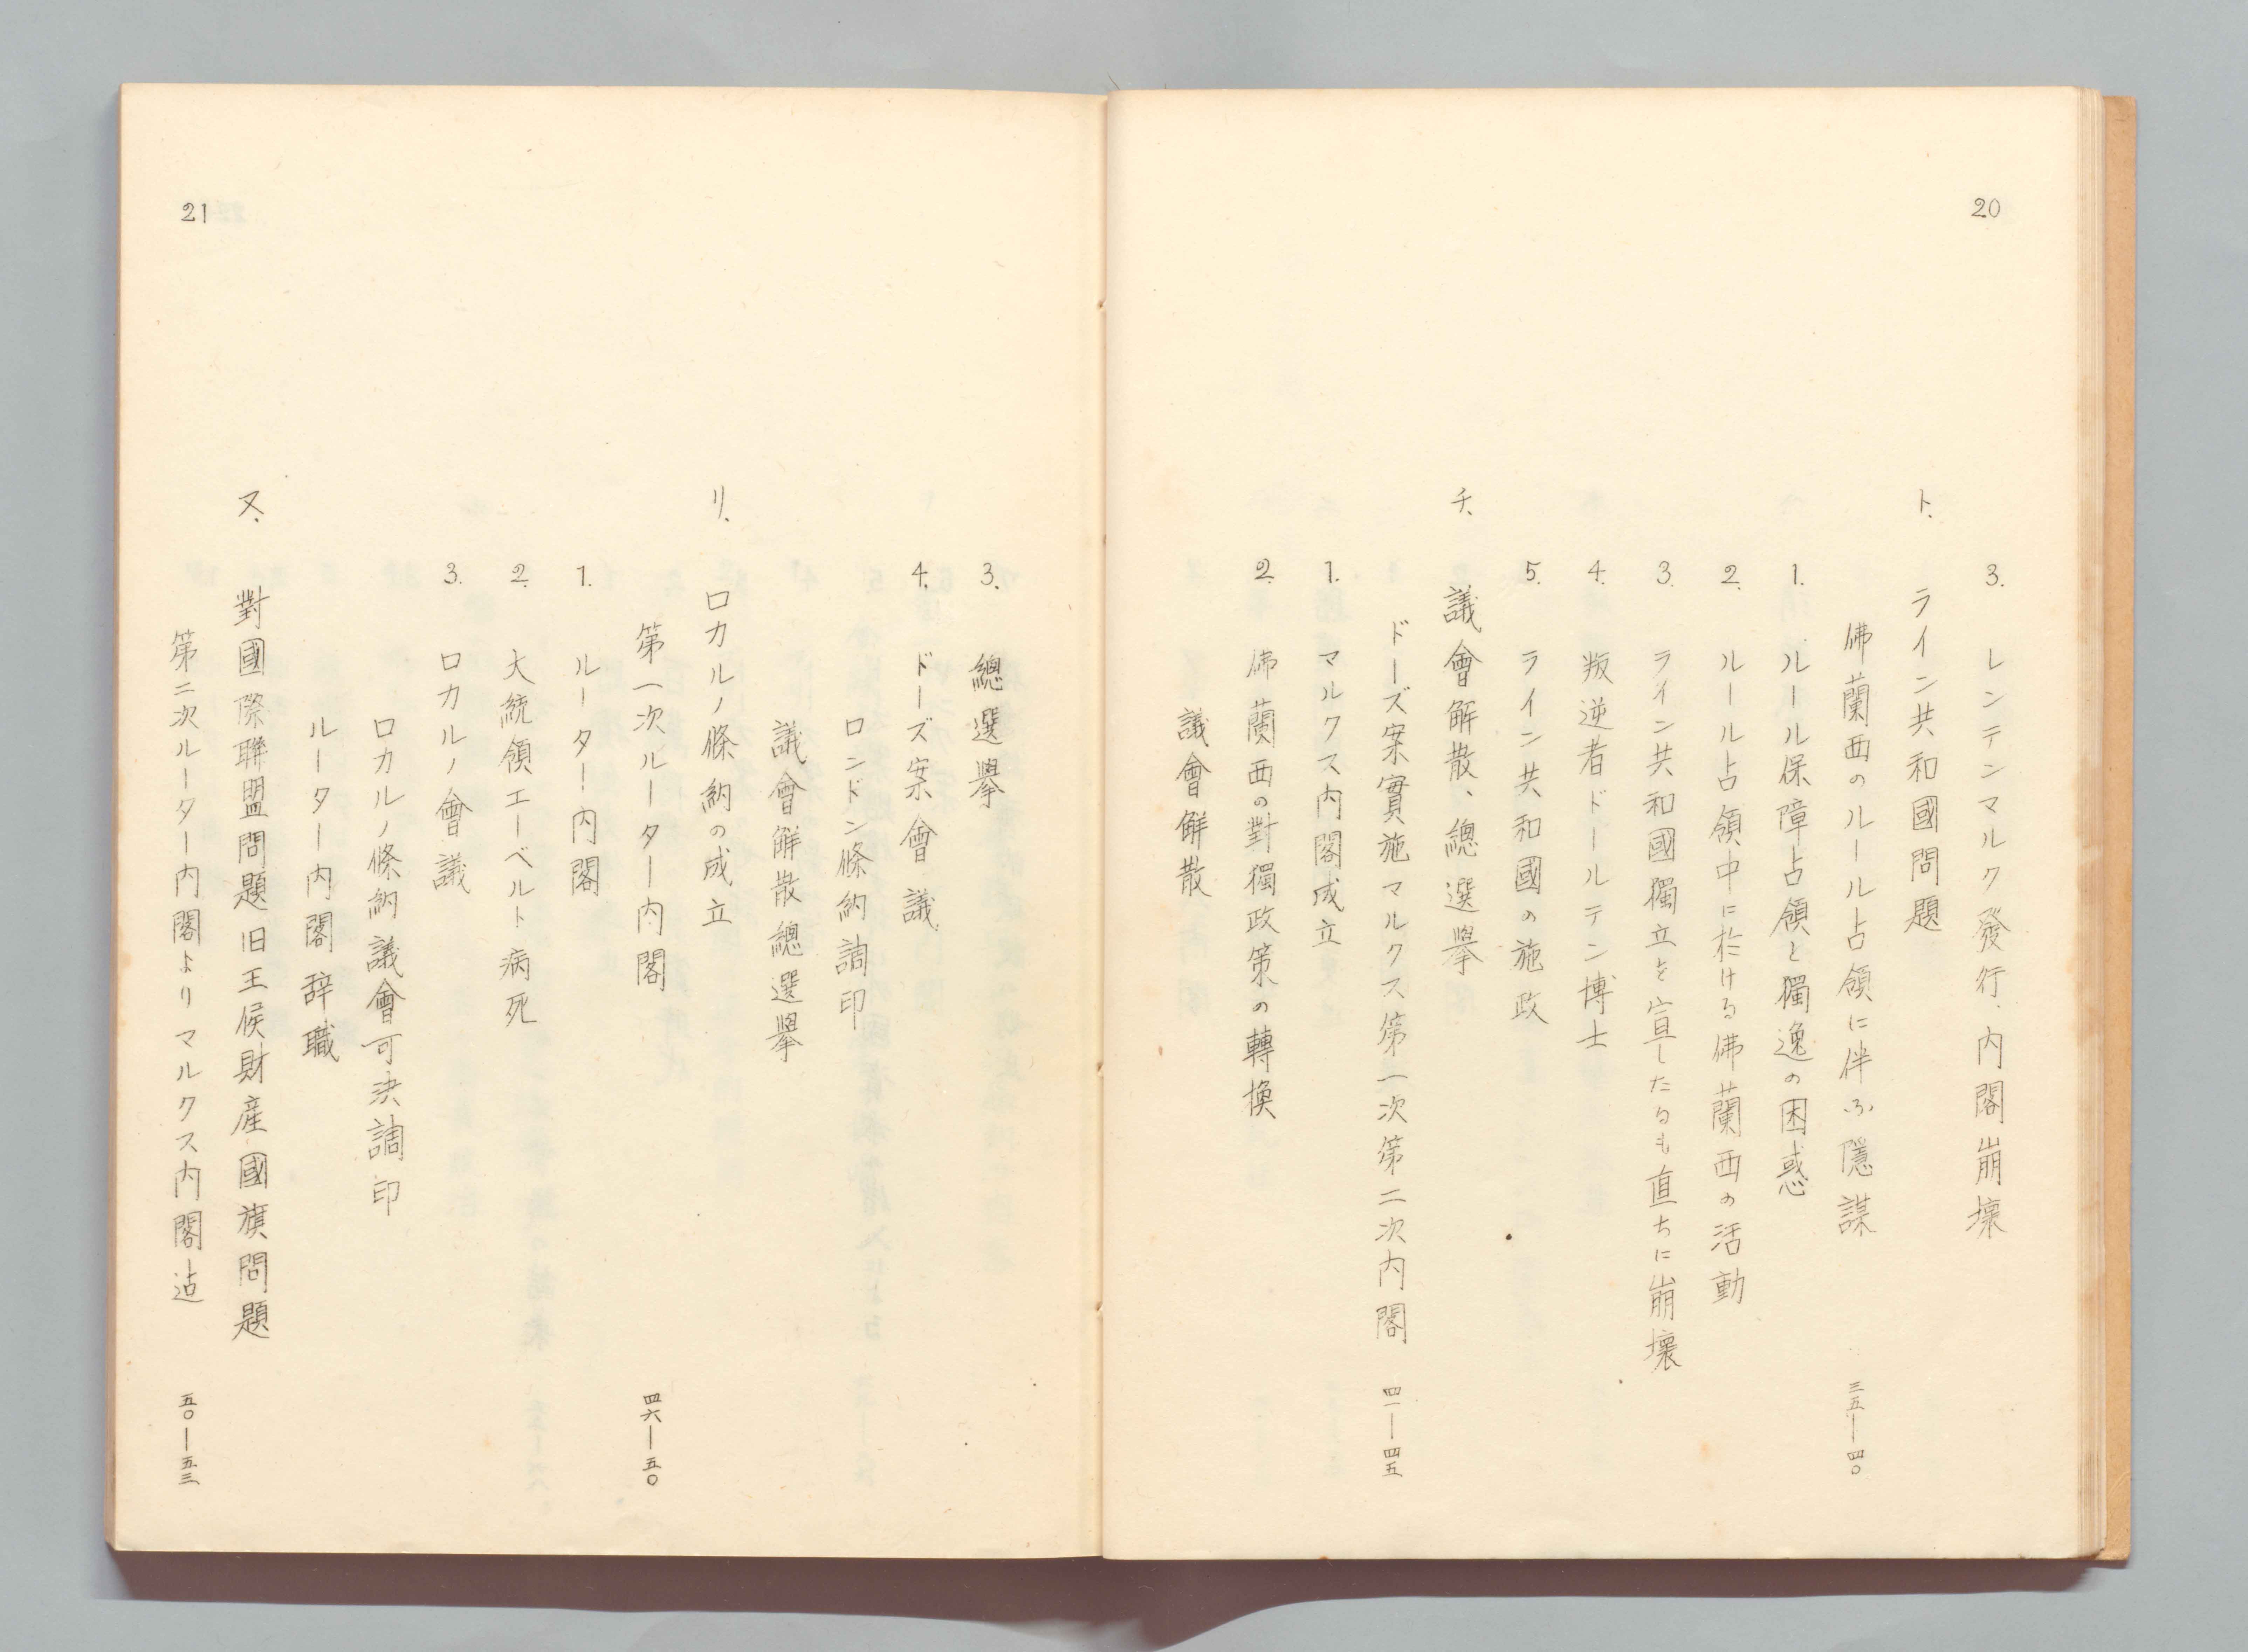 20
3. レンテンマルク發行、内閣崩壞
ト、ライン共和國問題
佛蘭西のルール占領に伴ふ隱謀 三五―四〇
1. ルール保障占領と獨逸の困惑
2. ルール占領中に於ける佛蘭西の活動
3. ライン共和國獨立を宣したるも直ちに崩壞
4. 叛逆者ドールテン博士
5. ライン共和國の施政
チ、議會解散、總選擧
ドーズ案實施マルクス第一次第二次内閣 四一―四五
1. マルクス内閣成立
2. 佛蘭西の對獨政策の轉換
議會解散
3. 總選擧
4. ドーズ案會議
ロンドン條約調印
議會解散總選擧
リ、ロカルノ條約の成立
第一次ルーター内閣 四六―五〇
1. ルーター内閣
2. 大統領エーベルト病死
3. ロカルノ會議
ロカルノ條約議會可決調印
ルーター内閣辞職
ヌ、對國際聯盟問題旧王候財産國旗問題
第二次ルーター内閣よりマルクス内閣迠 五〇―五三
21